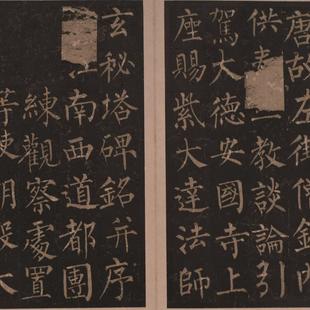 唐故左街僧錄内
供教談論引
駕大德安國寺上
座賜紫大達法師
玄秘塔碑銘并序
江南西道都團
練觀察處置
等使朝散大